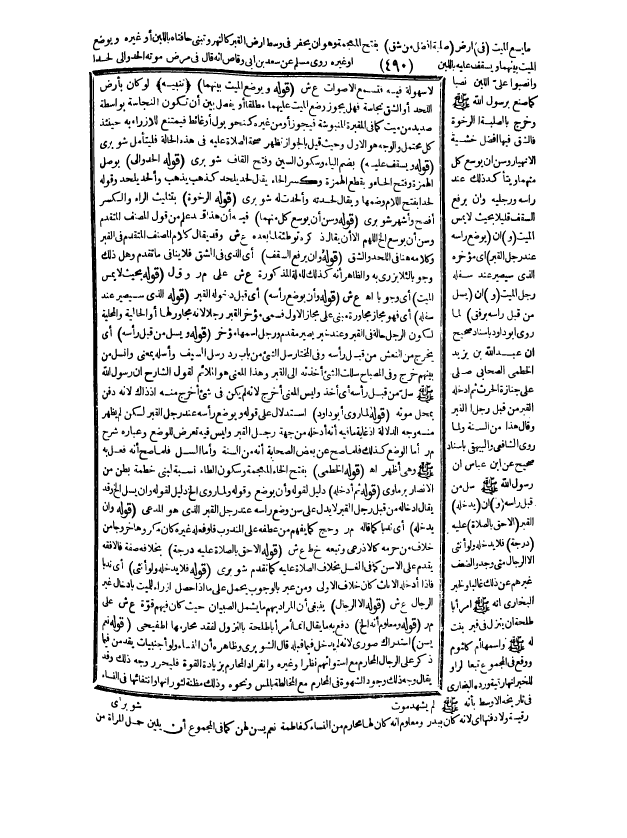 مايسع الميت (فى) أرض (صلبة أفضل من شق) بفتح المعجمة وهو أن يحفر فى وسط أرض القبر كالنهر وتبنى حافتاه باللبن أو غيره ويوضع
الميت بينهما ويسقف عليه باللبن (٤٩٠) أو غيره روى مسلم عن سعد بن أبى وقاص أنه قال فى مرض موته الحدوا لى لحدا
وانصبوا على اللبن نصبا
كما صنع برسول الله ﷺ
وخرج بالصلبة الرخوة
فالشق فيها أفضل خشية
الانهيار وسن أن يوسع كل
منهما ويتأكد ذلك عند
رأسه ورجليه وأن يرفع
السقف قليلا بحيث لا يمس
الميت (و) أن (يوضع رأسه
عند رجل القبر) أى مؤخره
الذى سيصير عند سفله
رجل الميت (و) أن (يسل
من قبل رأسه برفق) لما
روى أبو داود باسناد صحيح
ان عبد الله بن يزيد
الخطمى الصحابى صلى
على جنازة الحرث ثم أدخله
القبر من قبل رجل القبر
وقال هذا من السنة ولما
روى الشافعى والبيهقى باسناد
صحيح عن ابن عباس ان
رسول الله ﷺ سل من
قبل رأسه (و) أن (يدخله)
القبر (الاحق بالصلاة) عليه
(درجة) فلا يدخله ولو أنثى
الا الرجال متى وجدوا لضعف
غيرهم عن ذلك غالبا ولخبر
البخارى أنه ﷺ أمر أبا
طلحة أن ينزل فى قبر بنت
له ﷺ واسمها أم كلثوم
ووقع فى المجموع تبعا لراو
للخبر انها رقية ورده البخارى
فى تاريخه الاوسط بأنه ﷺ لم يشهد موت
لاسهولة فيه فتسمع الاصوات ع ش (قوله ويوضع الميت بينهما) (تنبيه) لو كان بأرض
اللحد أو الشق نجاسة فهل يجوز وضع الميت عليها مطلقا أو يفصل بين أن تكون النجاسة بواسطة
صديد من ميت كما فى المقبرة المنبوشة فيجوز أو من غيره كنحو بول أو غائط فيمتنع للازراء به حينئذ
كل محتمل والوجه هو الاول وحيث قيل بالجواز نظهر صحة الصلاة عليه فى هذه الحالة فليتأمل شو برى
(قوله ويسقف عليه) بضم الياء وسكون السين وفتح القاف شو برى (قوله الحدوا لى) بوصل
الهمزة وفتح الحاء وبقطع الهمزة وكسر الحاء يقال لحد يلحد كذهب يذهب وألحد يلحد وقوله
لحدا بفتح اللام وضمها ويقال لحدته وألحدت له شو برى (قوله الرخوة) بتثليث الراء والكسر
أفصح وأشهر شو برى (قوله وسن أن يوسع كل منهما) فيه أن هذا قد علم من قول المصنف المتقدم
وسن أن يوسع الخ اللهم الا أن يقال ذكره توطئة لما بعده ع ش وقد يقال كلام المصنف المتقدم فى القبر
وكلامه هنا فى اللحد والشق (قوله وان يرفع السقف) أى الذى فى الشق فلا ينافى ما تقدم وهل ذلك
وجو با لئلا يزرى به والظاهر أنه كذلك للعلة المذكورة ع ش على م ر وقول (قوله بحيث لا يمس
الميت) أى وجوبا اه ع ش (قوله وأن يوضع رأسه) أى قبل دخوله القبر (قوله الذى سيصير عند
سفله) أى فهو مجاز مجاورة مبنى على مجاز الاول فسمى مؤخر القبر رجلا لانه مجاور لها أو الحالية والمحلية
لكون الرجل حالة فى القبر وعند خبر يصير مقدم ورجل اسمها مؤخر (قوله ويسل من قبل رأسه) أى
يخرج من النعش من قبل رأسه وفى المختار سل الشئ من باب رد وسل السيف وأسله بمعنى وانسل من
بينهم خرج وفى المصباح سللت الشئ أخذته الى القبر وهذا المعنى هو الملائم لقول الشارح ان رسول الله
ﷺ سل من قبل رأسه أى أخذ وليس المعنى أخرج لانه لم يكن فى شئ أخرج منه اذ ذاك لانه دفن
بمحل موته (قوله لما روى أبو داود) استدلال على قوله ويوضع رأسه عند رجل القبر لكن لم يظهر
منه وجه الدلالة اذ غاية ما فيه أنه أدخله من جهة رجل القبر وليس فيه تعرض للوضع وعبارة شرح
م ر أما الوضع كذلك فلما صح عن بعض الصحابة أنه من السنة وأما السل فلما صح أنه فعل به
ﷺ وهى أظهر اه (قوله الخطمى) بفتح الخاء المعجمة وسكون الطاء نسبة لبنى خطمة بطن من
الانصار برماوى (قوله ثم أدخله) دليل لقوله وأن يوضع وقوله ولما روى الخ دليل لقوله وان يسل الخ وقد
يقال ادخاله من قبل رجل القبر لا يدل على سن وضع رأسه عند رجل القبر الذى هو المدعى (قوله وان
يدخله) أى ندبا كما قاله م ر وحج كما يفهم من عطفه على المندوب فلو فعله غيره كان مكروها خروجا من
خلاف من حرمه كالاذرعى وتبعه خ ط ع ش (قوله الاحق بالصلاة عليه درجة) بخلافه صفة فالافقه
يقدم على الاسن كما فى الغسل بخلاف الصلاة عليه كما تقدم شو برى (قوله فلا يدخله ولو أنثى) أى ندبا
فاذا أدخله الاناث كان خلاف الاولى ومن عبر بالوجوب يحمل على ما اذا حصل ازراء للميت بادخال غير
الرجال ع ش (قوله الا الرجال) ينبغى أن المراد بهم ما يشمل الصبيان حيث كان فيهم قوة ع ش على
م ر (قوله ومعلوم أنه الخ) دفع به ما يقال انما أمر أبا طلحة بالنزول لفقد محارمها اطفيحى (قوله نعم
يسن) استدراك صورى لانه لم يدخل فيما قبله قال الشو برى وظاهره أن النساء ولو أجنبيات يقدمن فيما
ذكر على الرجال المحارم مع استوائهم نظرا وغيره وانفراد المحارم بزيادة القوة فليحرر وجه ذلك وقد
يقال وجه ذلك وجود الشهوة فى المحارم مع المخالطة بالمس ونحوه وذلك مظنة لثورانها وانتفائها فى النساء
شو برى
رقية ولا دفنها أى لانه كان ببدر ومعلوم أنه كان لها محارم من النساء كفاطمة نعم يسن لهن كما فى المجموع أن يلين حمل المرأة من